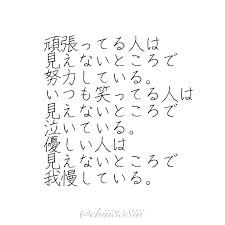 頑張ってる人は
見えないところで
努力している。
いつも笑ってる人は
見えないところで
泣いている。
優しい人は
見えないところで
我慢している。
@chiii858iii